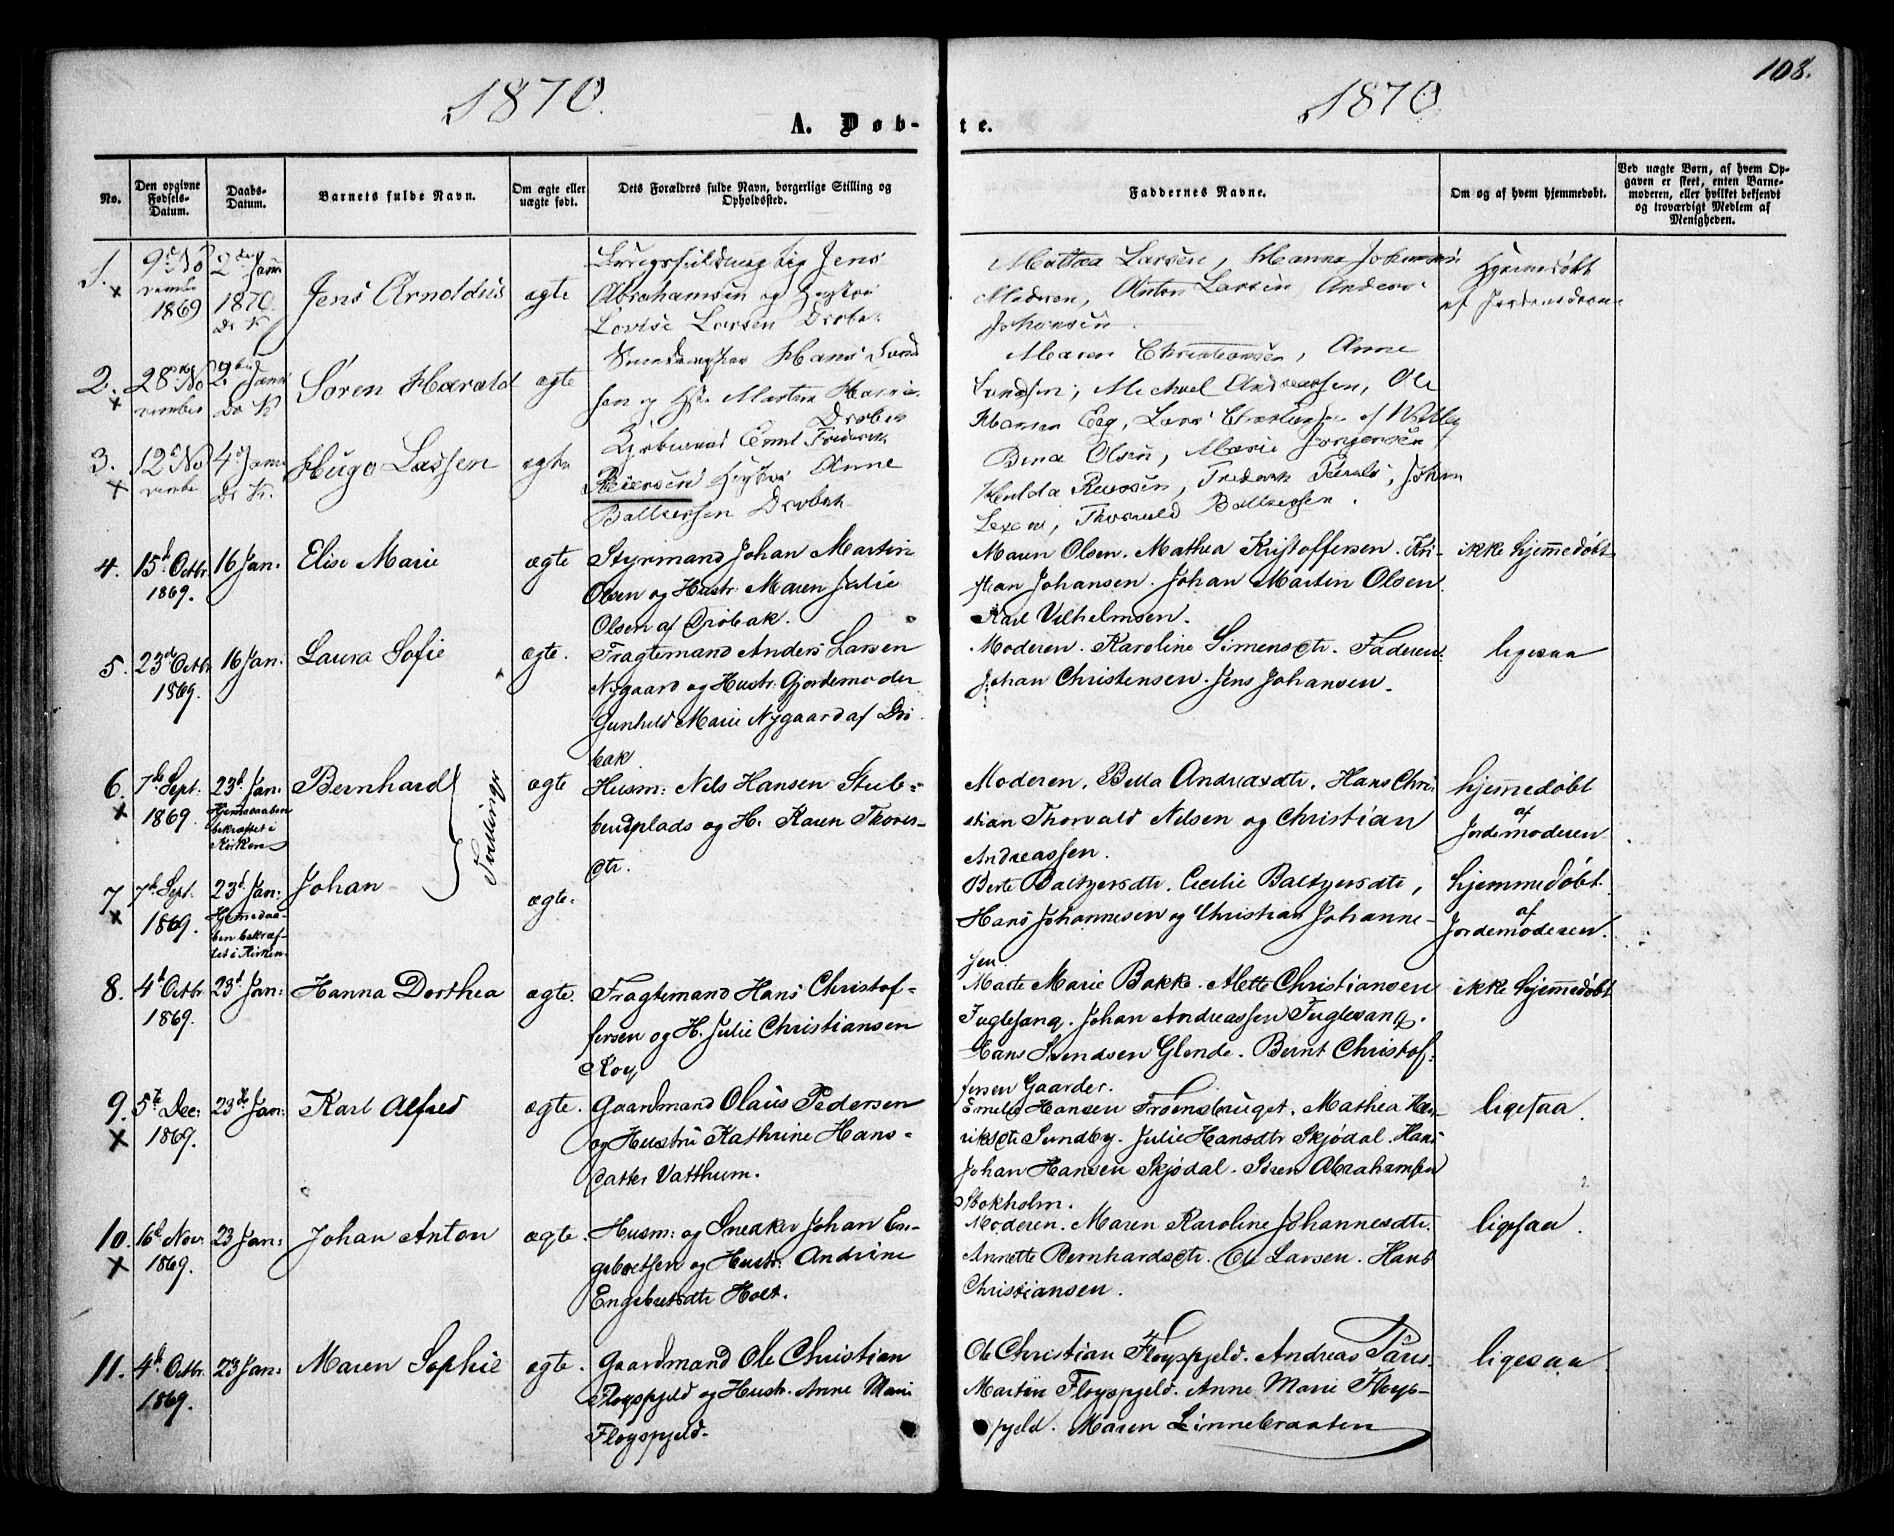 108.
1870. 1870
A. Døb- te.
No.
Den opgivne Fødsels-Datum.
Daabs-Datum.
Barnets fulde Navn.
Om ægte eller uægte født.
Dets Forældres fulde Navn, borgerlige Stilling og Opholdssted.
Faddernes Navne.
Om og af hvem hjemmedøbt.
Ved uægte Børn, af hvem Opgaven er skeet, enten Barnemoderen, eller hvilket bekjendt og troværdigt Medlem af Menigheden.
1. 9d No 2den Jan
x vember 1870.
1869
Jens Arnoldus
ægte
Jens
Abrahamsen og Hustru
Lovise Larsen Drøbak
Mathea Larsen, Hanna Johansen
Moderen, Anton Larsen Anders
Johansen
Hjemmedøbt
af Jordemoderen
2. 28 No 2 Jan
x vember
Søren Harald
ægte
Hans Svend
sen og Hst. Martha Marie
Drøbak
Maren Christiansen, Anne
Svendsen, Michael Andreassen, Ole
Hansen Eeg, Lars
3. 12 No 4 Jan
x vembe
Hugo Lassen
ægte
Emil Frederik
Reiersen Hustru Anne
Baltzersen Drøbak
Bina Olsen, Marie Jørgensen
Hulda Reiersen, Frederik
Thorvald Baltzersen.
4. 15d Octbr 16 Jan.
1869.
Elise Marie
ægte
Styrmand Johan Martin
Olsen og Hustr. Maren Julie
Olsen af Drøbak.
Maren Olsen. Mathea Kristoffersen. Kri-
stian Johansen. Johan Martin Olsen.
Karl Vilhelmsen.
ikke hjemmedøbt
5. 23d Octbr 16 Jan.
1869.
Laura Sofie
ægte.
Fragtemand Anders Larsen
Nygaard og Hustr: Gjordemoder
Gunhild Marie Nygaard af Drø
bak
Moderen. Karoline Simensdtr. Faderen.
Johan Christensen. Jens Johansen.
ligesaa
6. 7de Sept. 23d Jan:
x 1869. Hjemmedaaben
bekræftet i
Kirken
Bernhard
Tvillinger
ægte
Husm: Nels Hansen Stube-
berudplads og H. Karen Thores-
dtr.
Moderen. Berta Andreasdtr. Hans Chri-
stian Thorvald Nilsen og Christian
Andreassen.
hjemmedøbt
af
Jordemoderen
7 7d Sept. 23d. Jan:
x 1869. Hjemmedaa-
ben bekræf-
tet i Kirken.
Johan
ægte.
Berte Baltzersdtr. Cecilie Baltzersdtr,
Hans Johannesen og Christian Johanne-
sen.
hjemmedøbt.
af
Jordemoderen.
8. 4d Octbr 23d Jan:
1869.
Hanna Dorthea
ægte.
Fragtemand Hans Christof-
fersen og H. Julie Christiansen
Marte Marie Bakke. Alette Christiansen
Fuglesang. Johan Andreassen Fuglesang.
Hans Svendsen Glende. Bernt Christof-
fersen Gaarder.
ikke hjemmedøbt
9. 5te Dec: 23de Jan:
x 1869.
Karl Alfred
ægte.
Gaardmand Olaus Pedersen
og Hustru Kathrine Hans-
datter Vatthum.
Emelie Hansen Froensbruget. Mathea Hen-
riksdtr Sundby. Julie Hansdtr Skjødal. Hans
Johan Hansen Skjødal. Søren Abrahamsen
Stokholm.
ligesaa.
10. 16d Nov. 23 Jan:
x 1869.
Johan Anton
ægte.
Husm: og Snedker Johan En-
gebretsen og Hustr: Andrine
Engebretsdtr Holt.
Moderen. Maren Karoline Johannesdtr.
Annette Bernhardsdtr. Ole Larsen. Hans
Christiansen.
ligesaa.
11. 4d Octbr 23 Jan:
1869.
Maren Sophie
ægte.
Gaardmand Ole Christian
Fløyspjeld og Hustr. Anne Mari
Fløyspjeld.
Ole Christian Fløyspjeld. Andreas
Martin Fløyspjeld. Anne Marie Fløys-
pjeld. Maren Linnebraaten
ligesaa.